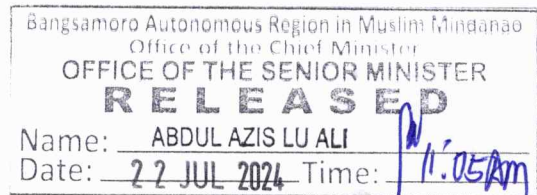 Bangsamoro Autonomous Region in Muslim Mindanao
Office of the Chief Minister
OFFICE OF THE SENIOR MINISTER
RELEASED
Name: ABDUL AZIS LU ALI
Date: 22 JUL 2024 Time: 11:05AM